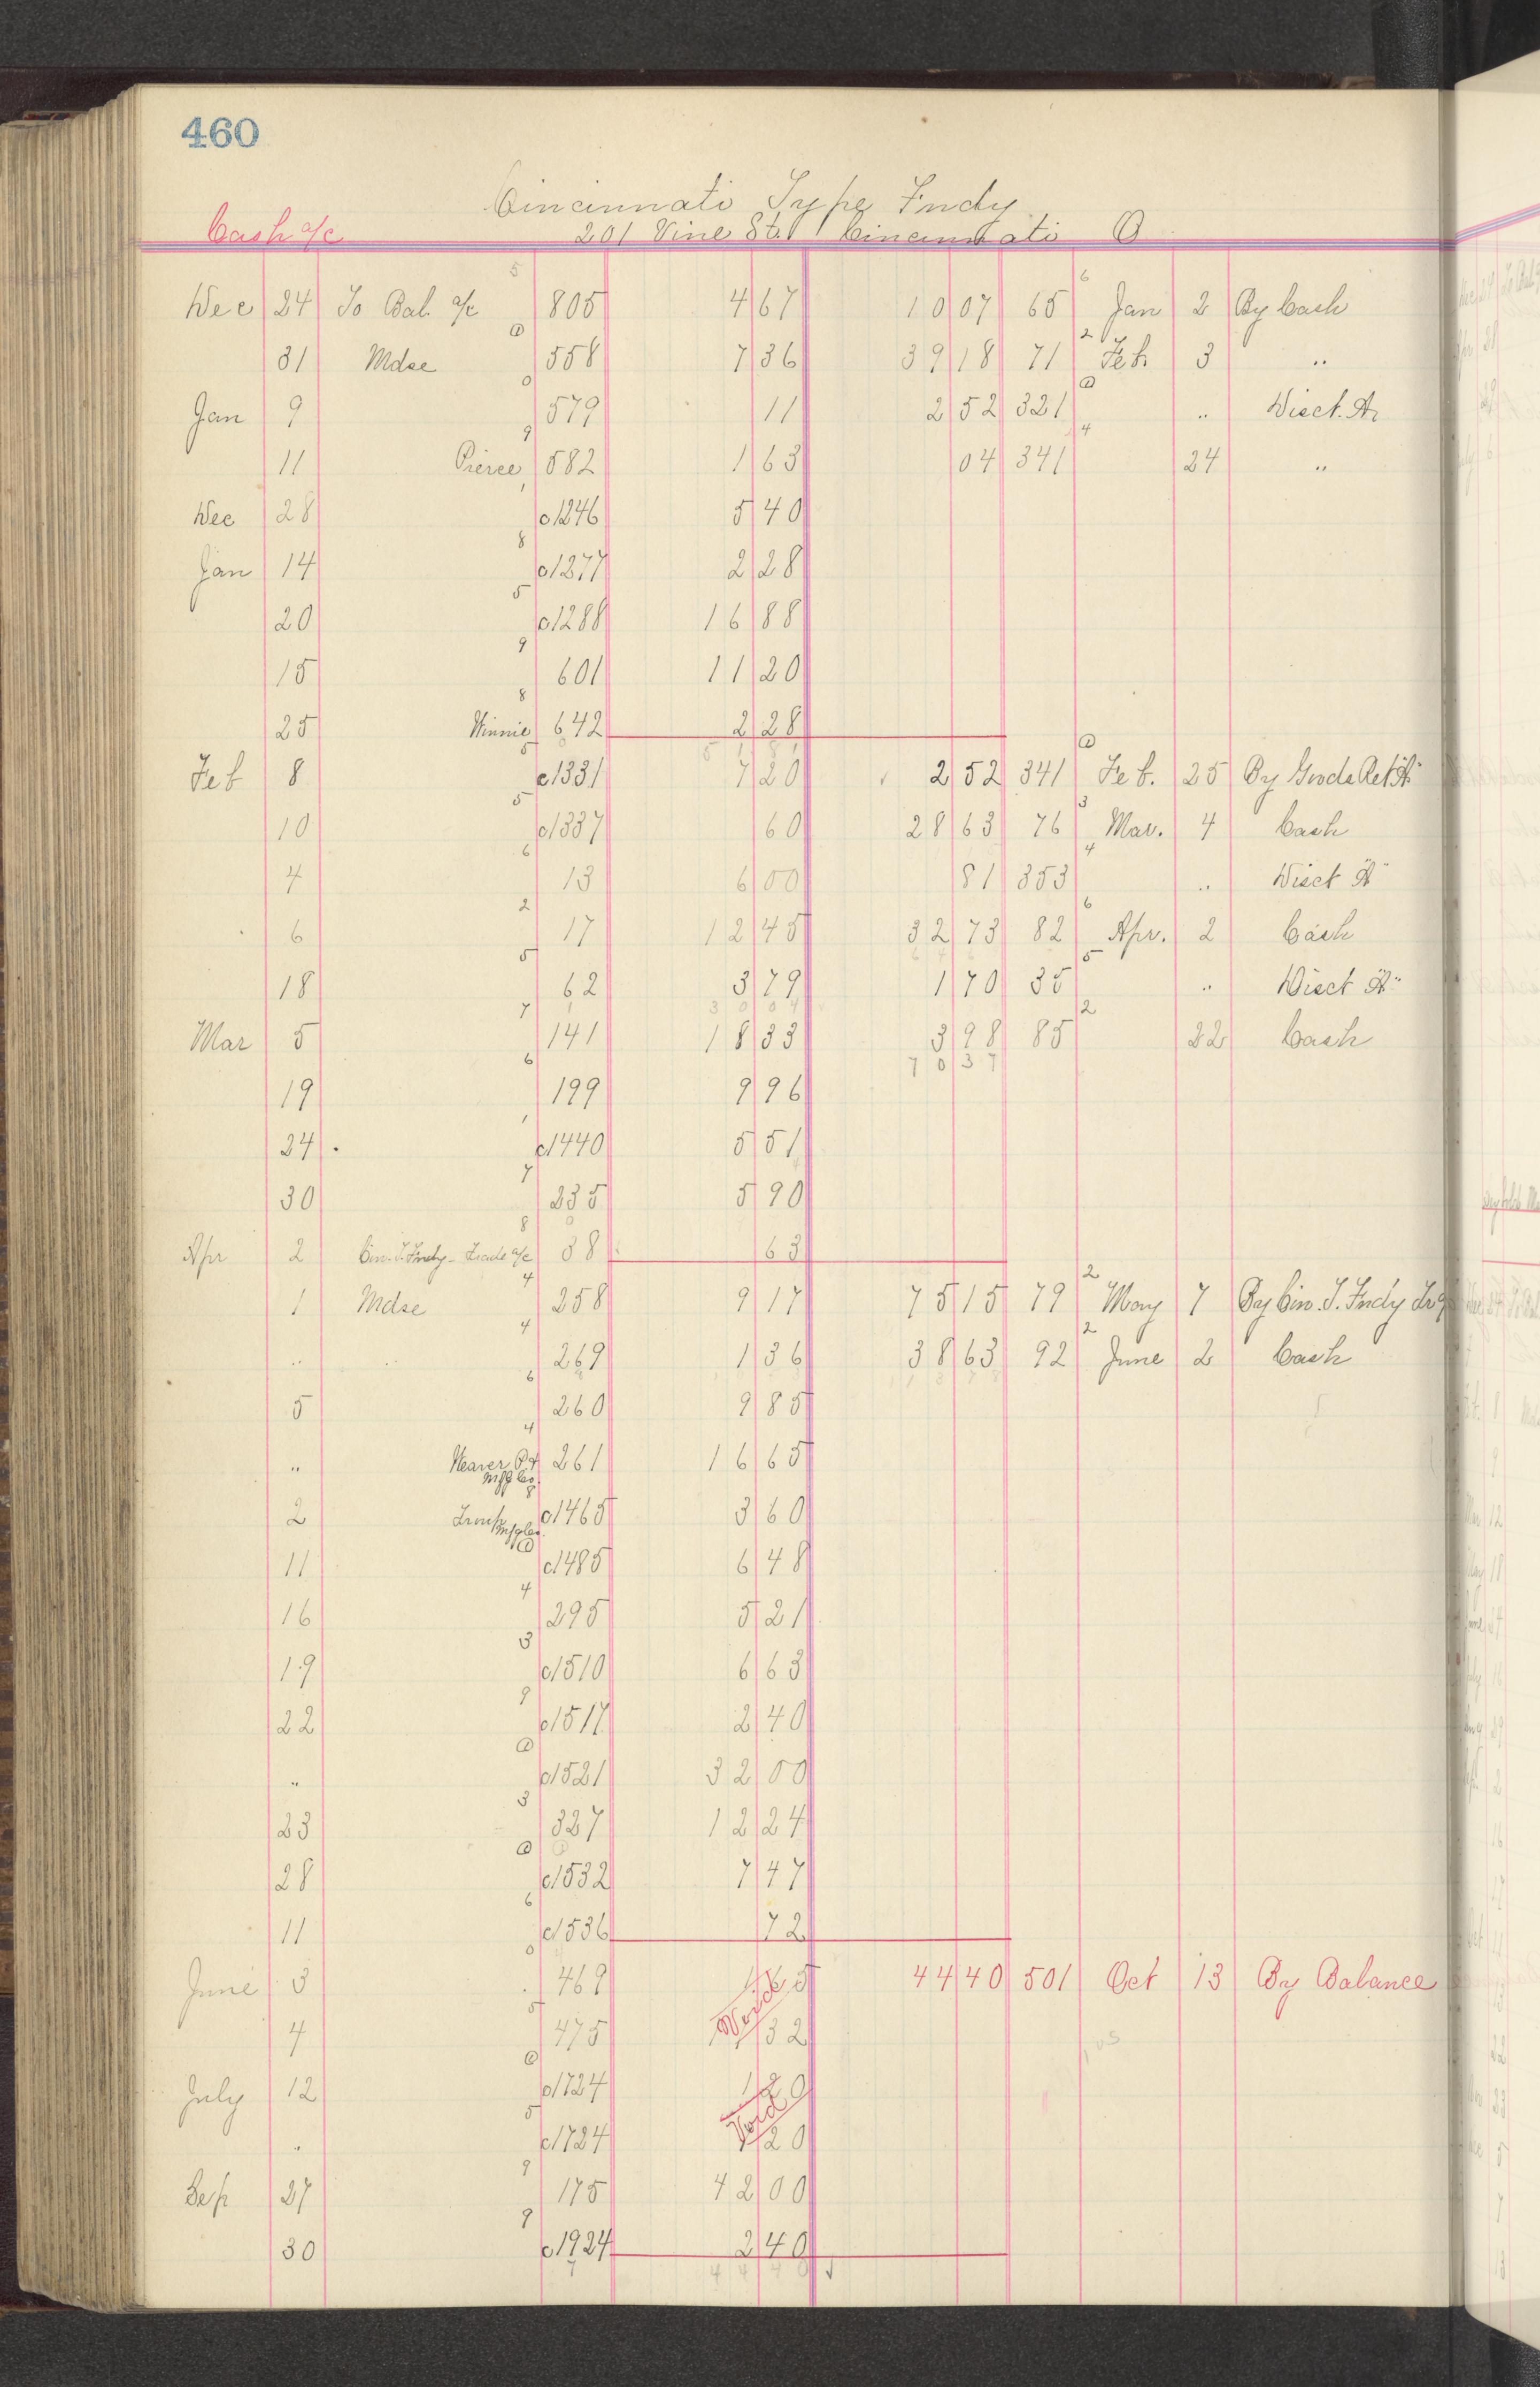 460
Cincinnati Type Fndy
Cash a/c 201 Vine St. Cincinnati O
Dec 24 To Bal. a/c 805 4 67 10 07 65 Jan 2 By Cash
31 Mdse 558 7 36 39 18 71 Feb. 3 "
Jan 9 579 11 2 52 321 " Disct. A
11 Pierce 582 1 63 04 341 24 "
Dec 28 c1246 5 40
Jan 14 c1277 2 28
20 c1288 16 88
15 601 11 20
25 Winnie 642 2 28
Feb 8 c1331 7 20 2 52 341 Feb. 25 By Goods Ret "A"
10 c1337 60 28 63 76 Mar. 4 Cash
4 13 6 00 81 353 " Disct "A"
6 17 12 45 32 73 82 Apr. 2 Cash
18 62 3 79 1 70 35 " Disct "A"
Mar 5 141 18 33 3 98 85 22 Cash
19 199 9 96 70 37
24 c1440 5 51
30 235 5 90
Apr 2 Cin. T. Fndy - Trade a/c 38 63
1 Mdse 258 9 17 75 15 79 May 7 By Cin. T. Fndy Tr
" " 269 1 36 38 63 92 June 2 Cash
5 260 9 85
" Weaver P. & Mfg Co. 261 16 65
2 c1465 3 60
11 c1485 6 48
16 295 5 21
19 c1510 6 63
22 c1517 2 40
" c1521 32 00
23 327 12 24
28 c1532 7 47
11 c1536 72
June 3 469 Void 44 40 501 Oct 13 By Balance
4 475 32
July 12 c1724 1 20 Void
" c1724 1 20
Sep 27 175 42 00
30 c1924 2 40
44 40